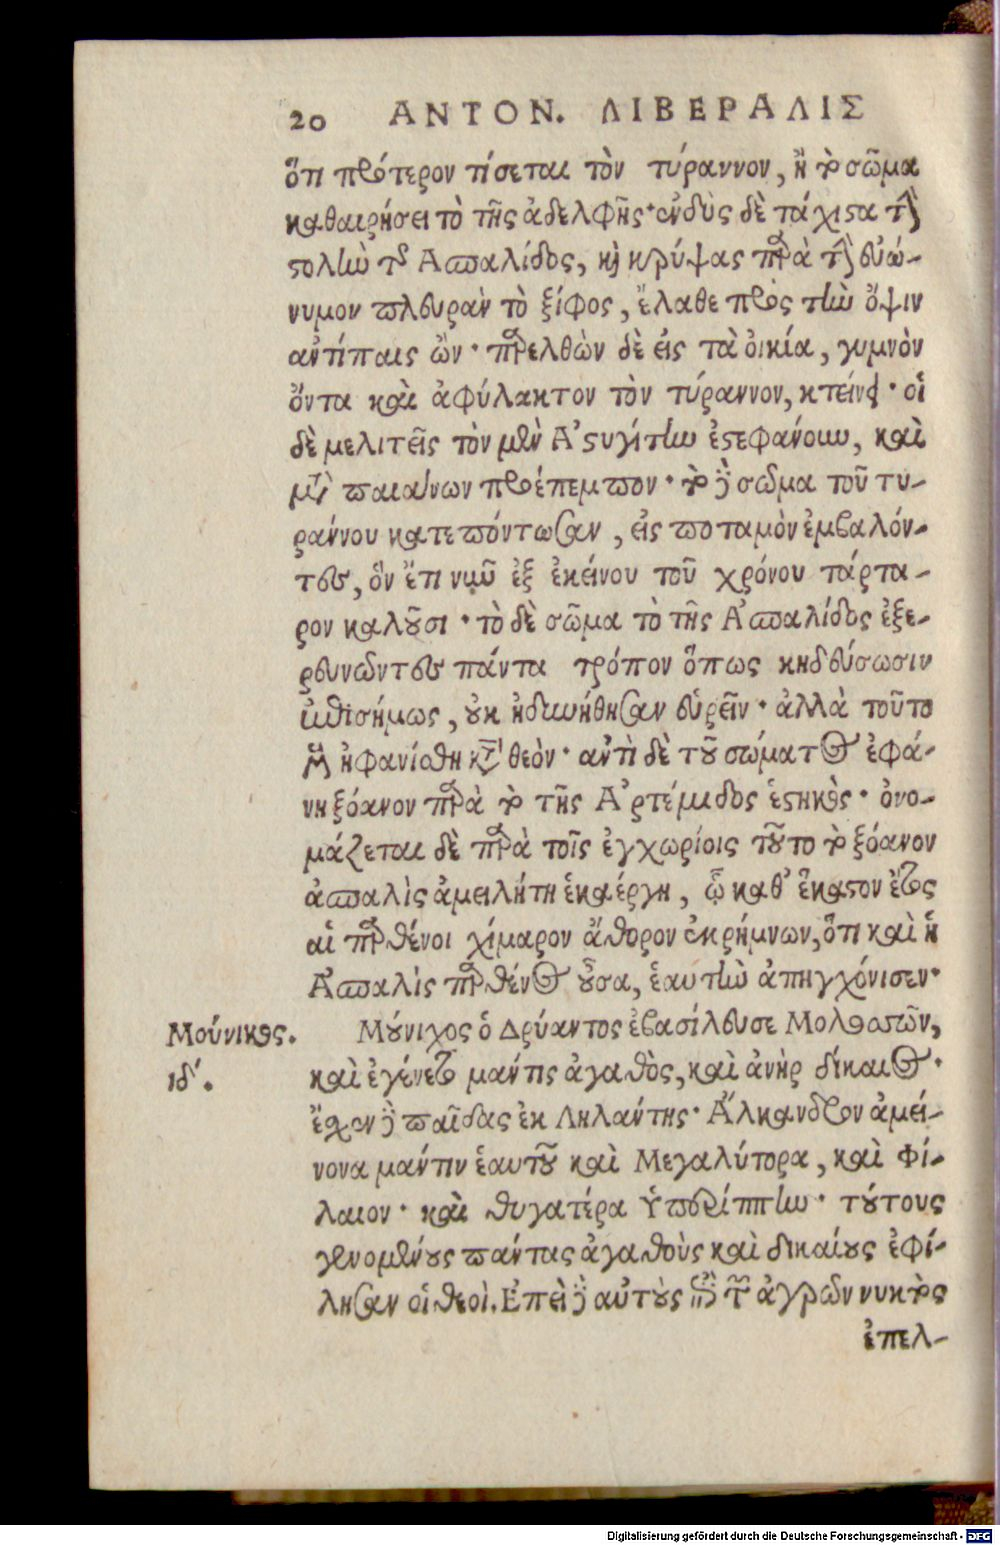 20 ΑΝΤΟΝ. ΛΙΒΕΡΑΛΙΣ
ὅτι πρότερον τίσεται τὸν τύραννον, ἢ τὸ σῶμα
καθαιρήσει τὸ τῆς ἀδελφῆς· ἐνδὺς δὲ τάχιστα τὴν
στολὴν τῆς Ἀσπαλίδος, καὶ κρύψας παρὰ τὴν εὐώ-
νυμον πλευρὰν τὸ ξίφος, ἔλαθε πρὸς τὴν ὄψιν
ἀντίπαις ὢν· παρελθὼν δὲ εἰς τὰ οἰκία, γυμνὸν
ὄντα καὶ ἀφύλακτον τὸν τύραννον, κτείνει· οἱ
δὲ μελιτεῖς τὸν μὲν Ἀστυγίτην ἐστεφάνουν, καὶ
μετὰ παιαίνων προέπεμπον· τὸ δὲ σῶμα τοῦ τυ-
ράννου κατεπόντωσαν, εἰς ποταμὸν ἐμβαλόν-
τες, ὃν ἔτι νῦν ἐξ ἐκείνου τοῦ χρόνου τάρτα-
ρον καλοῦσι· τὸ δὲ σῶμα τὸ τῆς Ἀσπαλίδος ἐξε-
ρευνῶντες πάντα τρόπον ὅπως κηδεύσωσιν
ἐπισήμως, οὐκ ἠδυνήθησαν εὑρεῖν· ἀλλὰ τοῦτο
μὲν ἠφανίσθη κατὰ θεὸν· ἀντὶ δὲ τοῦ σώματος ἐφά-
νη ξόανον παρὰ τὸ τῆς Ἀρτέμιδος ἑστηκὸς· ὀνο-
μάζεται δὲ παρὰ τοῖς ἐγχωρίοις τοῦτο τὸ ξόανον
ἀσπαλὶς ἀμειλήτη ἑκαέργη, ᾧ καθ' ἕκαστον ἔτος
αἱ παρθένοι χίμαρον ἄθορον ἐκρήμνων, ὅτι καὶ ἡ
Ἀσπαλὶς παρθένος οὖσα, ἑαυτὴν ἀπηγχόνισεν·
Μούνικος. Μούνιχος ὁ Δρύαντος ἐβασίλευσε Μολοσσῶν,
ιδʹ. καὶ ἐγένετο μάντις ἀγαθὸς, καὶ ἀνὴρ δίκαιος·
ἔσχεν δὲ παῖδας ἐκ Ληλάντης· Ἄλκανδρον ἀμεί-
νονα μάντιν ἑαυτοῦ καὶ Μεγαλύτορα, καὶ Φί-
λαιον· καὶ θυγατέρα Ὑπερίππην· τούτους
γενομένους πάντας ἀγαθοὺς καὶ δικαίους ἐφί-
λησαν οἱ θεοὶ. Ἐπεὶ δὲ αὐτοὺς ἐπὶ τῶν ἀγρῶν νυκτὸς
ἐπελ-
Digitalisierung gefördert durch die Deutsche Forschungsgemeinschaft - DFG